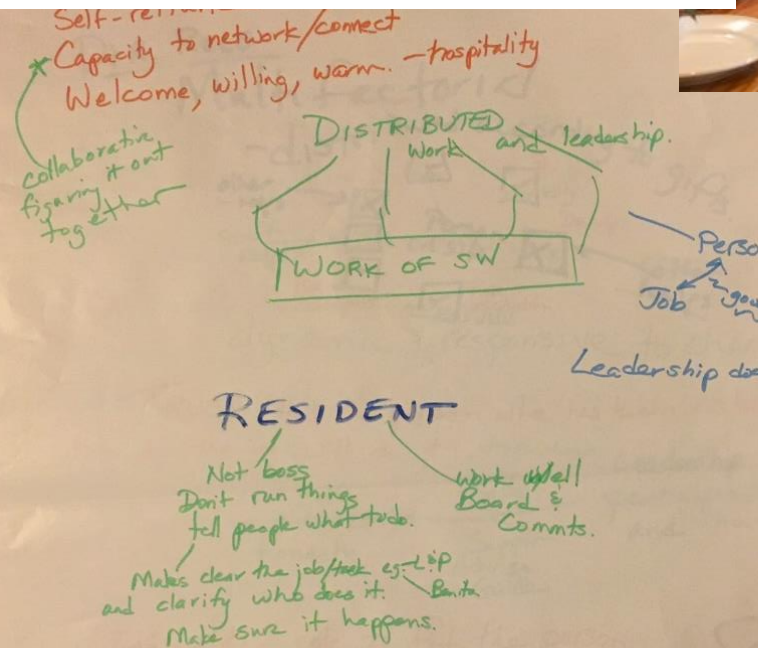 Capacity to network/connect
Welcome, willing, warm. - hospitality
collaborative
figuring it out
together
DISTRIBUTED
Work and leadership.
WORK OF SW
Perso
Job
Leadership doe
RESIDENT
Not boss
Don't run things
tell people what to do.
Makes clear the job/task eg-
and clarify who does it.
Make sure it happens.
work well
Board &
Commts.